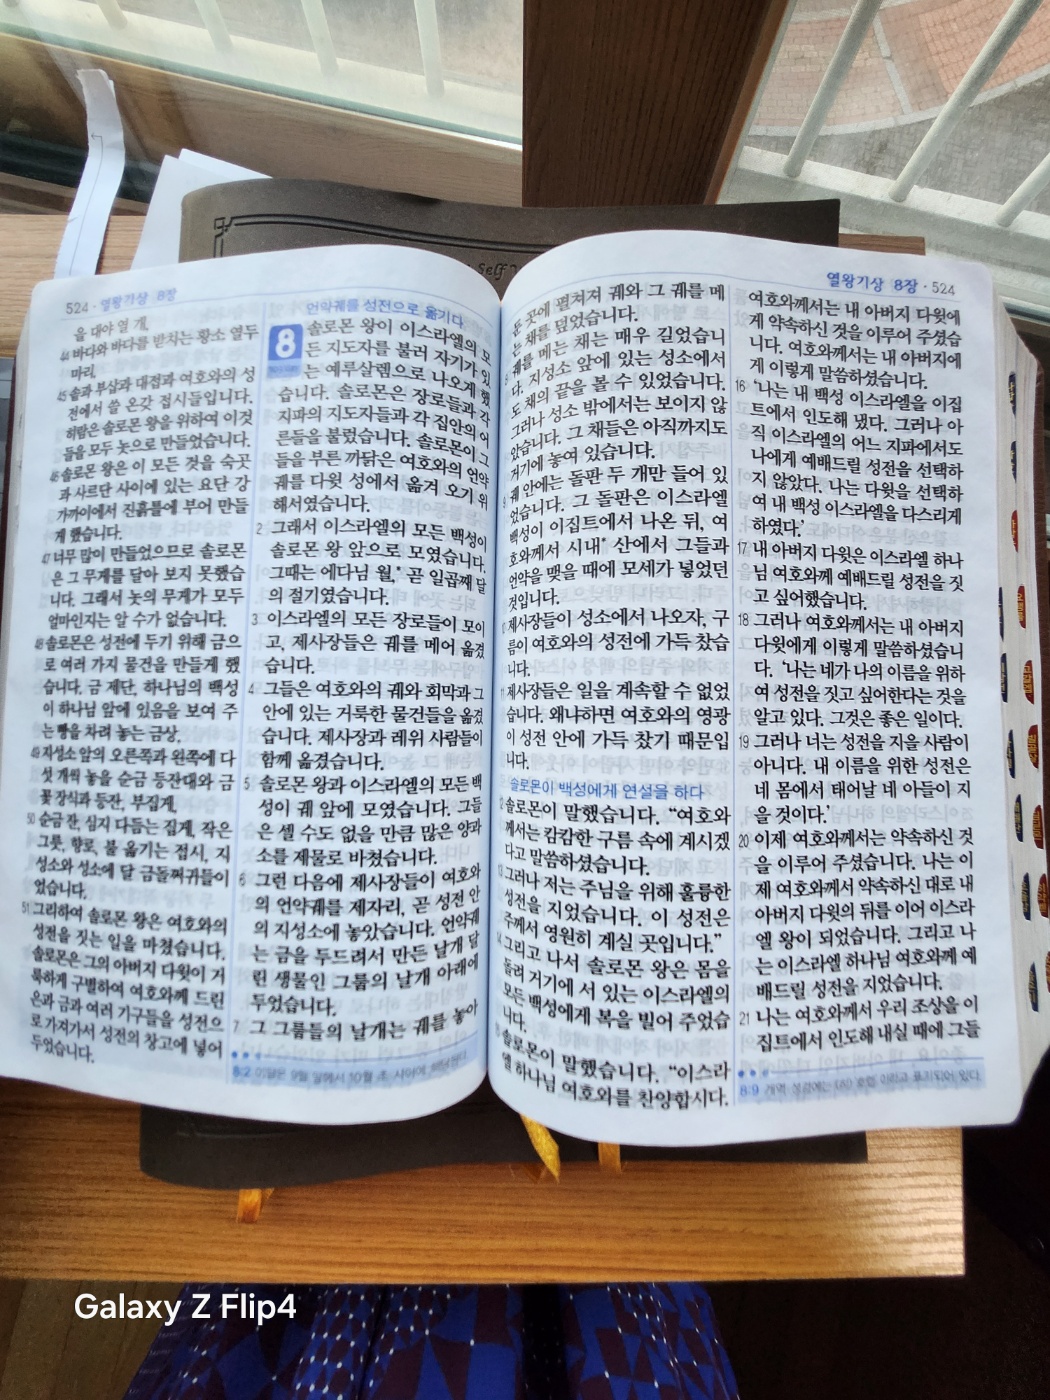 Self
524 · 열왕기상 8장
을 대야 열 개,
44 바다와 바다를 받치는 황소 열두
마리,
45 솥과 부삽과 대접과 여호와의 성
전에서 쓸 온갖 접시들입니다.
히람은 솔로몬 왕을 위하여 이것
들을 모두 놋으로 만들었습니다.
46 솔로몬 왕은 이 모든 것을 숙곳
과 사르단 사이에 있는 요단 강
가까이에서 진흙틀에 부어 만들
게 했습니다.
47 너무 많이 만들었으므로 솔로몬
은 그 무게를 달아 보지 못했습
니다. 그래서 놋의 무게가 모두
얼마인지는 알 수가 없습니다.
48 솔로몬은 성전에 두기 위해 금으
로 여러 가지 물건을 만들게 했
습니다. 금 제단, 하나님의 백성
이 하나님 앞에 있음을 보여 주
는 빵을 차려 놓는 금상,
49 지성소 앞의 오른쪽과 왼쪽에 다
섯 개씩 놓을 순금 등잔대와 금
꽃 장식과 등잔, 부집게,
50 순금 잔, 심지 다듬는 집게, 작은
그릇, 향로, 불 옮기는 접시, 지
성소와 성소에 달 금돌쩌귀들이
었습니다.
51 그리하여 솔로몬 왕은 여호와의
성전을 짓는 일을 마쳤습니다.
솔로몬은 그의 아버지 다윗이 거
룩하게 구별하여 여호와께 드린
은과 금과 여러 기구들을 성전으
로 가져가서 성전의 창고에 넣어
두었습니다.
언약궤를 성전으로 옮기다
8 솔로몬 왕이 이스라엘의 모
든 지도자를 불러 자기가 있
는 예루살렘으로 나오게 했
습니다. 솔로몬은 장로들과 각
지파의 지도자들과 각 집안의 어
른들을 불렀습니다. 솔로몬이 그
들을 부른 까닭은 여호와의 언약
궤를 다윗 성에서 옮겨 오기 위
해서였습니다.
2 그래서 이스라엘의 모든 백성이
솔로몬 왕 앞으로 모였습니다.
그때는 에다님 월,* 곧 일곱째 달
의 절기였습니다.
3 이스라엘의 모든 장로들이 모이
고, 제사장들은 궤를 메어 옮겼
습니다.
4 그들은 여호와의 궤와 회막과 그
안에 있는 거룩한 물건들을 옮겼
습니다. 제사장과 레위 사람들이
함께 옮겼습니다.
5 솔로몬 왕과 이스라엘의 모든 백
성이 궤 앞에 모였습니다. 그들
은 셀 수도 없을 만큼 많은 양과
소를 제물로 바쳤습니다.
6 그런 다음에 제사장들이 여호와
의 언약궤를 제자리, 곧 성전 안
의 지성소에 놓았습니다. 언약궤
는 금을 두드려서 만든 날개 달
린 생물인 그룹의 날개 아래에
두었습니다.
7 그 그룹들의 날개는 궤를 놓아
8:2 이달은 9월 말에서 10월 초 사이에
열왕기상 8장 · 524
둔 곳에 펼쳐져 궤와 그 궤를 메
는 채를 덮었습니다.
궤를 메는 채는 매우 길었습니
다. 지성소 앞에 있는 성소에서
도 채의 끝을 볼 수 있었습니다.
그러나 성소 밖에서는 보이지 않
았습니다. 그 채들은 아직까지도
거기에 놓여 있습니다.
궤 안에는 돌판 두 개만 들어 있
었습니다. 그 돌판은 이스라엘
백성이 이집트에서 나온 뒤, 여
호와께서 시내* 산에서 그들과
언약을 맺을 때에 모세가 넣었던
것입니다.
제사장들이 성소에서 나오자, 구
름이 여호와의 성전에 가득 찼습
니다.
제사장들은 일을 계속할 수 없었
습니다. 왜냐하면 여호와의 영광
이 성전 안에 가득 찼기 때문입
니다.
솔로몬이 백성에게 연설을 하다
솔로몬이 말했습니다. “여호와
께서는 캄캄한 구름 속에 계시겠
다고 말씀하셨습니다.
그러나 저는 주님을 위해 훌륭한
성전을 지었습니다. 이 성전은
주께서 영원히 계실 곳입니다.”
그리고 나서 솔로몬 왕은 몸을
돌려 거기에 서 있는 이스라엘의
모든 백성에게 복을 빌어 주었습
니다.
솔로몬이 말했습니다. “이스라
엘 하나님 여호와를 찬양합시다.
여호와께서는 내 아버지 다윗에
게 약속하신 것을 이루어 주셨습
니다. 여호와께서는 내 아버지에
게 이렇게 말씀하셨습니다.
16 ‘나는 내 백성 이스라엘을 이집
트에서 인도해 냈다. 그러나 아
직 이스라엘의 어느 지파에서도
나에게 예배드릴 성전을 선택하
지 않았다. 나는 다윗을 선택하
여 내 백성 이스라엘을 다스리게
하였다.’
17 내 아버지 다윗은 이스라엘 하나
님 여호와께 예배드릴 성전을 짓
고 싶어했습니다.
18 그러나 여호와께서는 내 아버지
다윗에게 이렇게 말씀하셨습니
다. ‘나는 네가 나의 이름을 위하
여 성전을 짓고 싶어한다는 것을
알고 있다. 그것은 좋은 일이다.
19 그러나 너는 성전을 지을 사람이
아니다. 내 이름을 위한 성전은
네 몸에서 태어날 네 아들이 지
을 것이다.’
20 이제 여호와께서는 약속하신 것
을 이루어 주셨습니다. 나는 이
제 여호와께서 약속하신 대로 내
아버지 다윗의 뒤를 이어 이스라
엘 왕이 되었습니다. 그리고 나
는 이스라엘 하나님 여호와께 예
배드릴 성전을 지었습니다.
21 나는 여호와께서 우리 조상을 이
집트에서 인도해 내실 때에 그들
8:9 개역 성경에는 (시) 호렙 이라고 표기되어 있다.
Galaxy Z Flip4